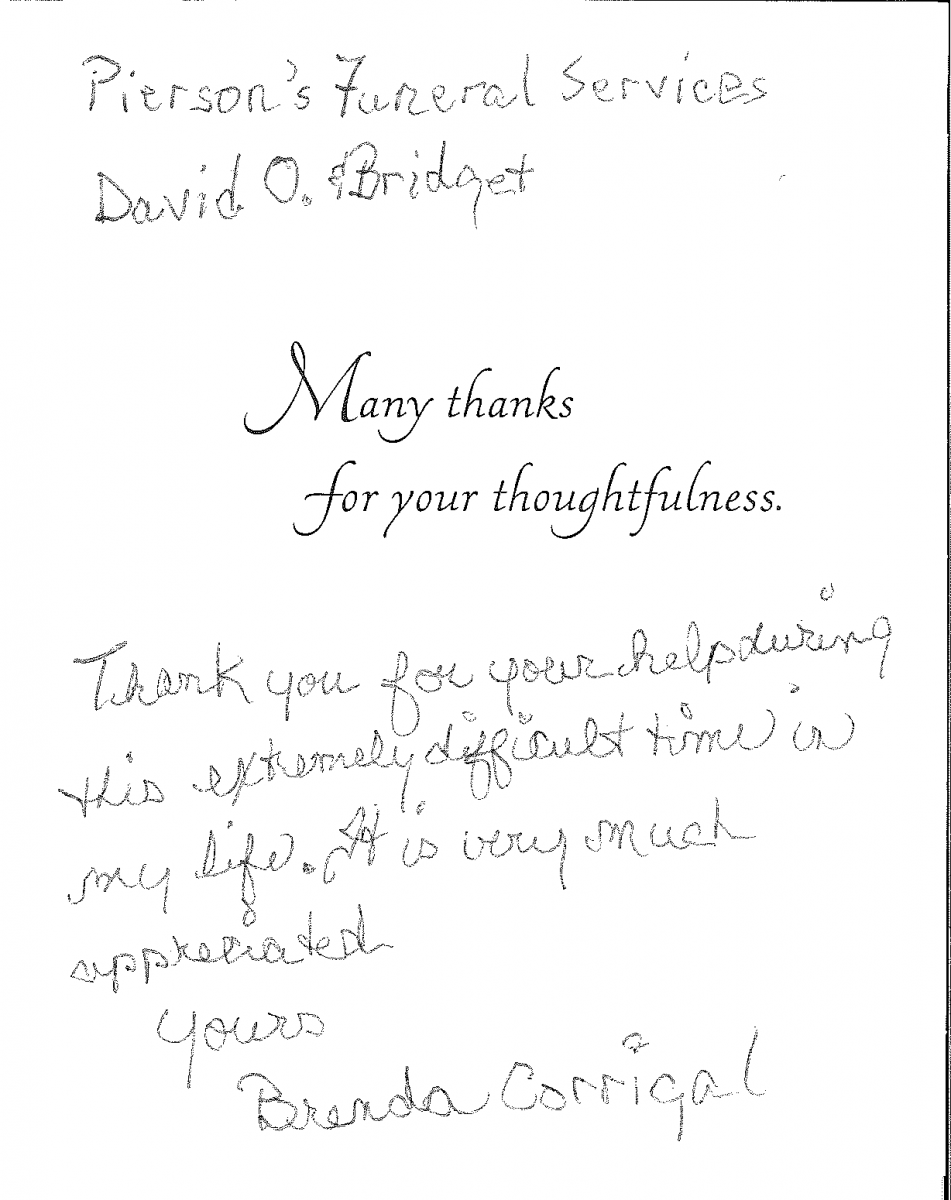 Pierson's Funeral Services
David O. & Bridget
Many thanks
for your thoughtfulness.
Thank you for your help during
this extremely difficult time in
my life. It is very much
appreciated
Yours
Brenda Corrigal